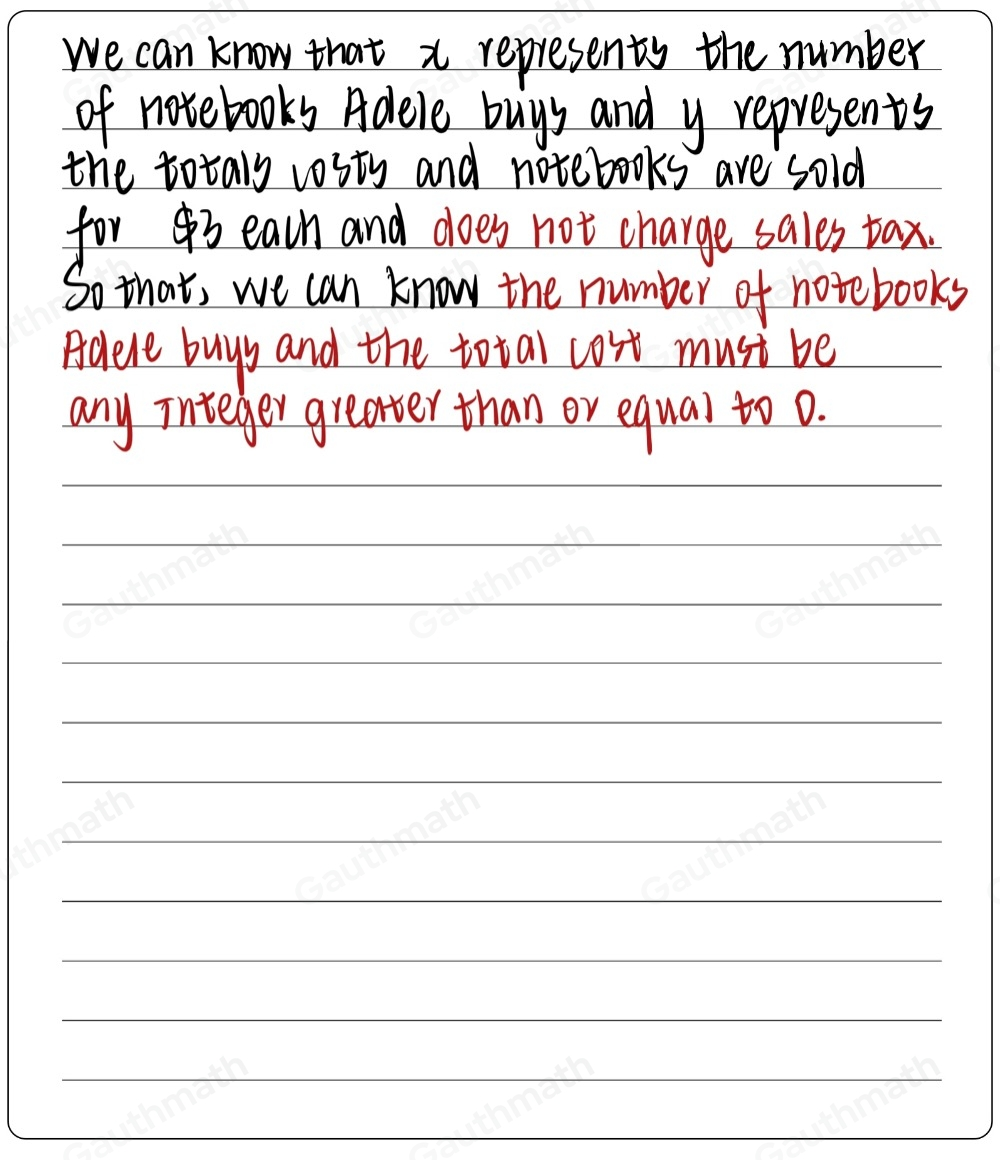 We can know that x represents the number
of notebooks Adele buys and y represents
the totals costs and notebooks are sold
for $3 each and does not charge sales tax.
So that, we can know the number of notebooks
Adele buys and the total cost must be
any Integer greater than or equal to 0.
Gauthmath